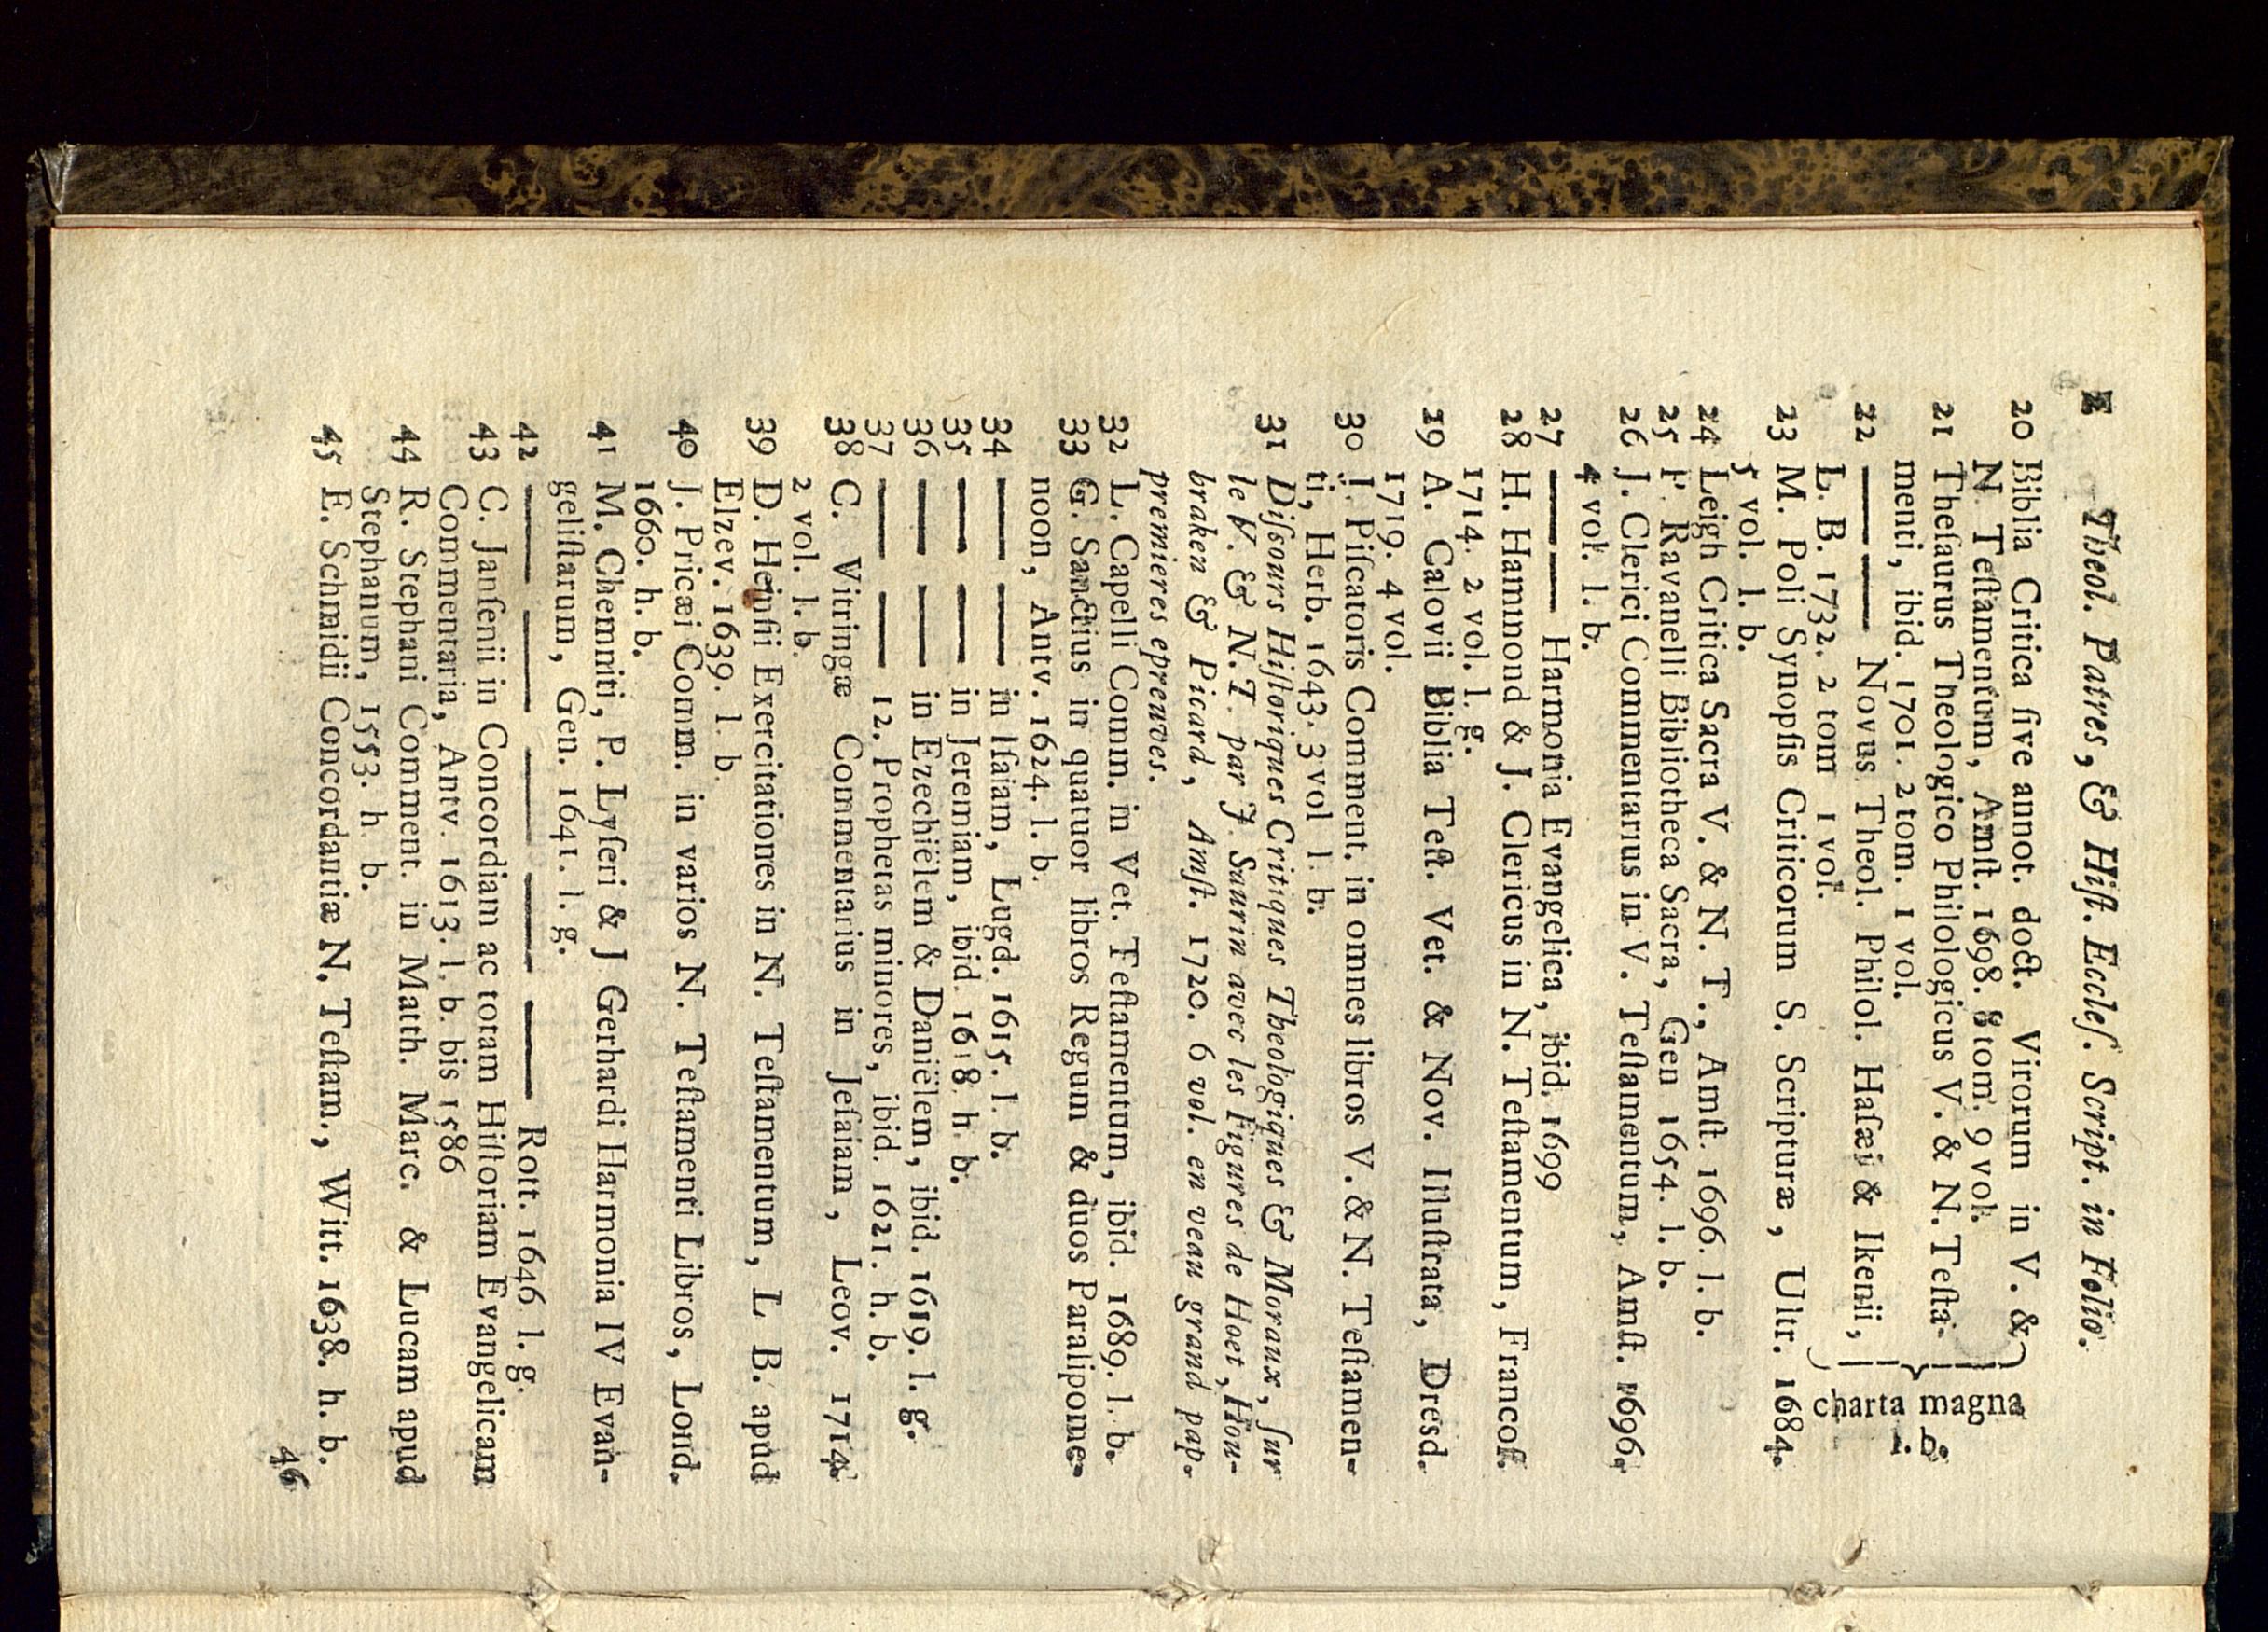 2 Theol. Patres, & Hiſt. Eccleſ. Script. in Folio.
20 Biblia Critica ſive annot. doct. Virorum in V. &
N. Teſtamentum, Amſt. 1698. 8 tom. 9 vol.
21 Theſaurus Theologico Philologicus V. & N. Teſta-
menti, ibid. 1701. 2 tom. 1 vol.
22 —— —— Novus Theol. Philol. Haſæi & Ikenii,
L. B. 1732. 2 tom 1 vol.
charta magna
h. b.
23 M. Poli Synopſis Criticorum S. Scripturæ, Ultr. 1684.
5 vol. l. b.
24 Leigh Critica Sacra V. & N. T., Amſt. 1696. l. b.
25 P. Ravanelli Bibliotheca Sacra, Gen 1654. l. b.
26 J. Clerici Commentarius in V. Teſtamentum, Amſt. 1696.
4 vol. l. b.
27 —— —— Harmonia Evangelica, ibid. 1699
28 H. Hammond & J. Clericus in N. Teſtamentum, Francof.
1714. 2 vol. l. g.
29 A. Calovii Biblia Teſt. Vet. & Nov. Illuſtrata, Dresd.
1719. 4 vol.
30 J. Piſcatoris Comment. in omnes libros V. & N. Teſtamen-
ti, Herb. 1643. 3 vol l. b.
31 Diſsours Hiſtoriques Critiques Theologiques & Moraux, ſur
le V. & N. T. par J. Saurin avec les Figures de Hoet, Hou-
braken & Picard, Amſt. 1720. 6 vol. en veau grand pap.
premieres epreuves.
32 L. Capelli Comm. in Vet. Teſtamentum, ibid. 1689. l. b.
33 G. Sanctius in quatuor libros Regum & duos Paralipome-
noon, Antv. 1624. l. b.
34 —— —— in Iſaiam, Lugd. 1615. l. b.
35 —— —— in Jeremiam, ibid. 1618. h b.
36 —— —— in Ezechiëlem & Daniëlem, ibid. 1619. l. g.
37 —— —— 12. Prophetas minores, ibid. 1621. h. b.
38 C. Vitringæ Commentarius in Jeſaiam, Leov. 1714.
2 vol. l. b.
39 D. Heinſii Exercitationes in N. Teſtamentum, L B. apud
Elzev. 1639. l. b.
40 J. Pricæi Comm. in varios N. Teſtamenti Libros, Lond.
1660. h. b.
41 M. Chemniti, P. Lyſeri & J Gerhardi Harmonia IV Evan-
geliſtarum, Gen. 1641. l. g.
42 —— —— —— —— —— Rott. 1646 l. g.
43 C. Janſenii in Concordiam ac totam Hiſtoriam Evangelicam
Commentaria, Antv. 1613. l. b. bis 1586
44 R. Stephani Comment. in Matth. Marc. & Lucam apud
Stephanum, 1553. h. b.
45 E. Schmidii Concordantiæ N. Teſtam., Witt. 1638. h. b.
46